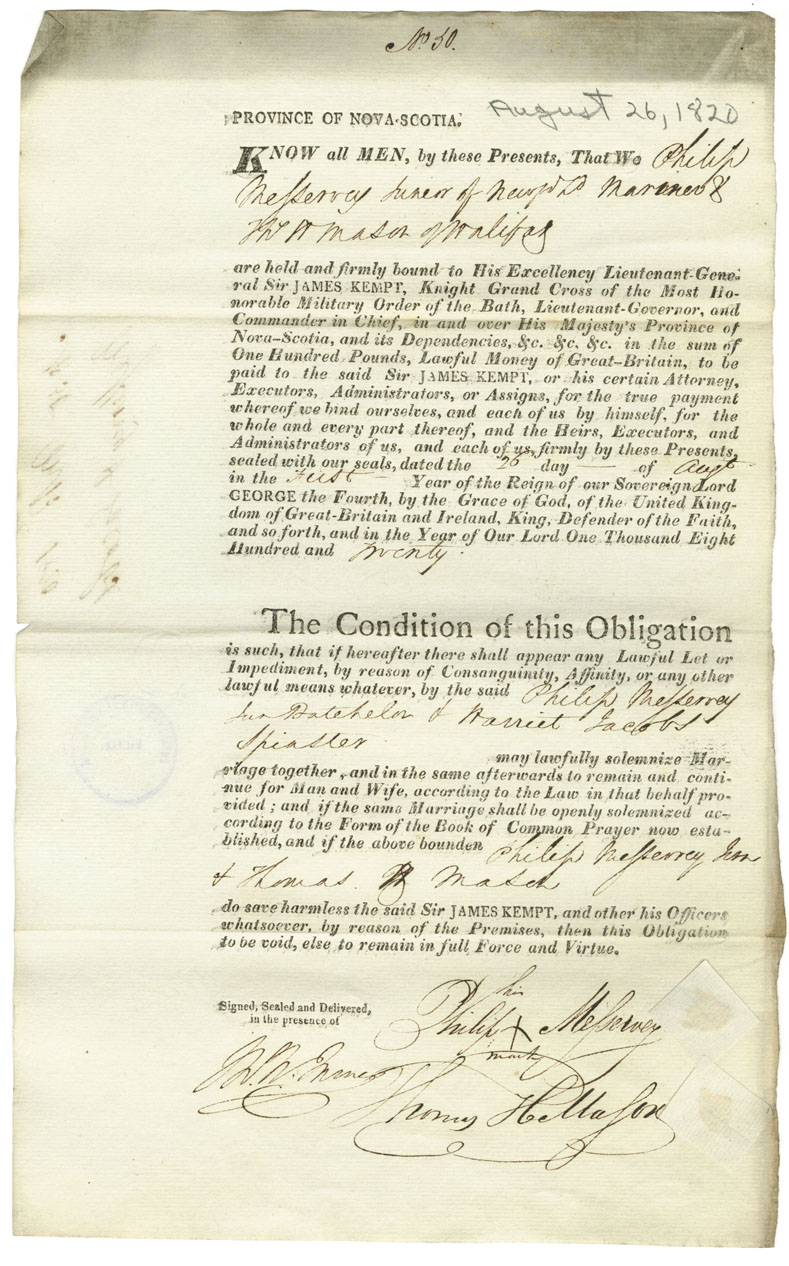 No 50.
August 26, 1820
PROVINCE OF NOVA-SCOTIA.
KNOW all MEN, by these Presents, That We Philip
Messervey Junior of Mariner &
Ths H Mason of Halifax
are held and firmly bound to His Excellency Lieutenant-Gene-
ral Sir JAMES KEMPT, Knight Grand Cross of the Most Ho-
norable Military Order of the Bath, Lieutenant-Governor, and
Commander in Chief, in and over His Majesty's Province of
Nova-Scotia, and its Dependencies, &c. &c. &c. in the sum of
One Hundred Pounds, Lawful Money of Great-Britain, to be
paid to the said Sir JAMES KEMPT, or his certain Attorney,
Executors, Administrators, or Assigns, for the true payment
whereof we bind ourselves, and each of us by himself, for the
whole and every part thereof, and the Heirs, Executors, and
Administrators of us, and each of us, firmly by these Presents,
sealed with our seals, dated the 26 day — of Augt
in the First — Year of the Reign of our Sovereign Lord
GEORGE the Fourth, by the Grace of God, of the United King-
dom of Great-Britain and Ireland, King, Defender of the Faith,
and so forth, and in the Year of Our Lord One Thousand Eight
Hundred and Twenty.
The Condition of this Obligation
is such, that if hereafter there shall appear any Lawful Let or
Impediment, by reason of Consanguinity, Affinity, or any other
lawful means whatever, by the said Philip Messervey
Junr Batchelor & Harriet Jacobs
Spinster
may lawfully solemnize Mar-
riage together, and in the same afterwards to remain and conti-
nue for Man and Wife, according to the Law in that behalf pro-
vided; and if the same Marriage shall be openly solemnized ac-
cording to the Form of the Book of Common Prayer now esta-
blished, and if the above bounden Philip Messervey Junr
& Thomas H Mason
do save harmless the said Sir JAMES KEMPT, and other his Officers
whatsoever, by reason of the Premises, then this Obligation
to be void, else to remain in full Force and Virtue.
Signed, Sealed and Delivered,
in the presence of
his
Philip X Messervey
mark
Thomas H Mason